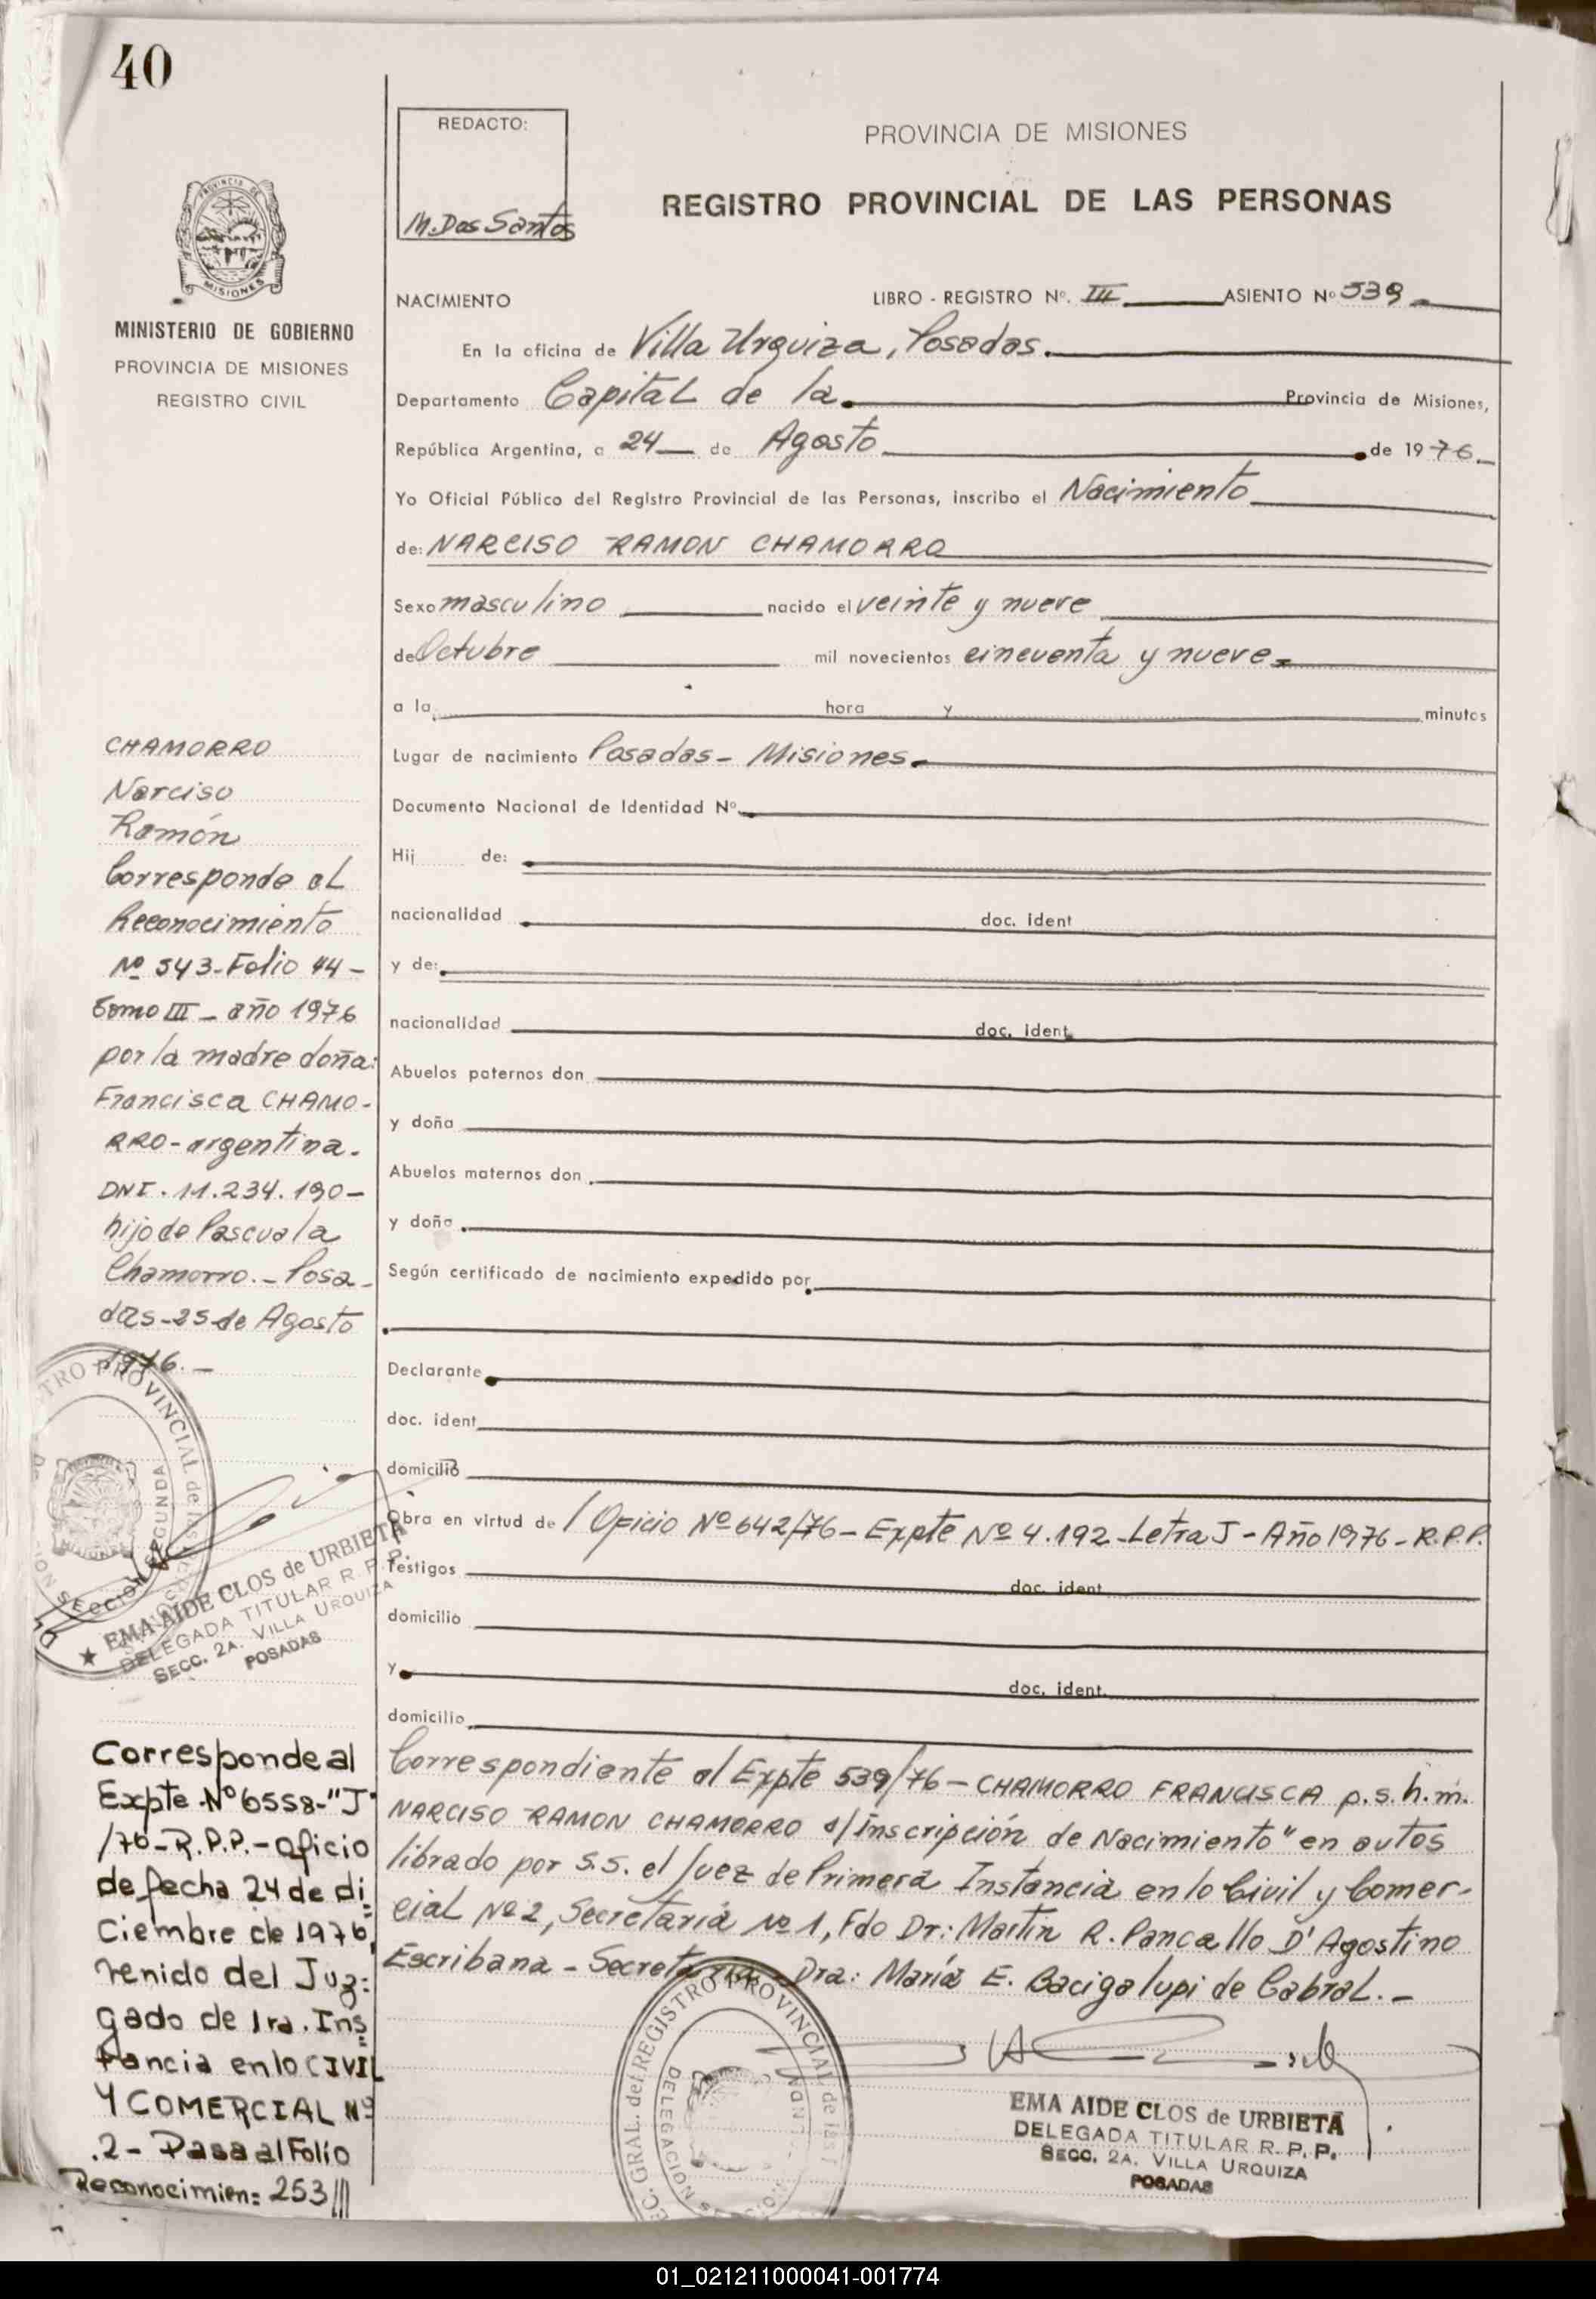 40
REDACTO:
M. Dos Santos
PROVINCIA DE MISIONES
REGISTRO PROVINCIAL DE LAS PERSONAS
PROVINCIA DE
MISIONES
MINISTERIO DE GOBIERNO
PROVINCIA DE MISIONES
REGISTRO CIVIL
NACIMIENTO LIBRO - REGISTRO Nº. III ASIENTO Nº 539
En la oficina de Villa Urquiza, Posadas.
Departamento Capital de la Provincia de Misiones,
República Argentina, a 24 de Agosto de 1976.
Yo Oficial Público del Registro Provincial de las Personas, inscribo el Nacimiento
de: NARCISO RAMON CHAMORRO
Sexo masculino nacido el veinte y nueve
de Octubre mil novecientos cincuenta y nueve.
a la hora y minutos
Lugar de nacimiento Posadas - Misiones.
Documento Nacional de Identidad Nº
Hij de:
nacionalidad doc. ident
y de:
nacionalidad doc. ident.
Abuelos paternos don
y doña
Abuelos maternos don
y doña
Según certificado de nacimiento expedido por
Declarante
doc. ident
domicilio
Obra en virtud de / Oficio Nº 642/76 - Expte Nº 4.192 - Letra J - Año 1976 - R.P.P.
Testigos doc. ident
domicilio
y doc. ident.
domicilio
Correspondiente al Expte 539/76 - CHAMORRO FRANCISCA p.s.h.m.
NARCISO RAMON CHAMORRO s/ Inscripción de Nacimiento" en autos
librado por S.S. el Juez de Primera Instancia en lo Civil y Comer-
cial Nº 2, Secretaría Nº 1, Fdo Dr: Martin R. Pancallo D'Agostino
Escribana - Secretaria - Dra: María E. Bacigalupi de Cabral. -
EMA AIDE CLOS de URBIETA
DELEGADA TITULAR R. P. P.
SECC. 2A. VILLA URQUIZA
POSADAS
EC. GRAL. del REGISTRO PROVINCIAL de las
DELEGACION
CHAMORRO
Narciso
Ramón
Corresponde al
Reconocimiento
Nº 543 - Folio 44 -
Tomo III - año 1976
por la madre doña:
Francisca CHAMO-
RRO - argentina.
DNI. 11.234.190 -
hijo de Pascuala
Chamorro. - Posa-
das - 25 de Agosto
1976. -
TRO PROVINCIAL de las
SECCION SEGUNDA
EMA AIDE CLOS de URBIETA
DELEGADA TITULAR R. P. P.
SECC. 2A. VILLA URQUIZA
POSADAS
Corresponde al
Expte Nº 6558 - "J"
/76 - R.P.P. - oficio
de fecha 24 de di
ciembre de 1976,
venido del Juz:
gado de 1ra. Ins
tancia en lo CIVIL
Y COMERCIAL Nº
.2 - Pasa al Folio
Reconocimien: 253///
01_021211000041-001774